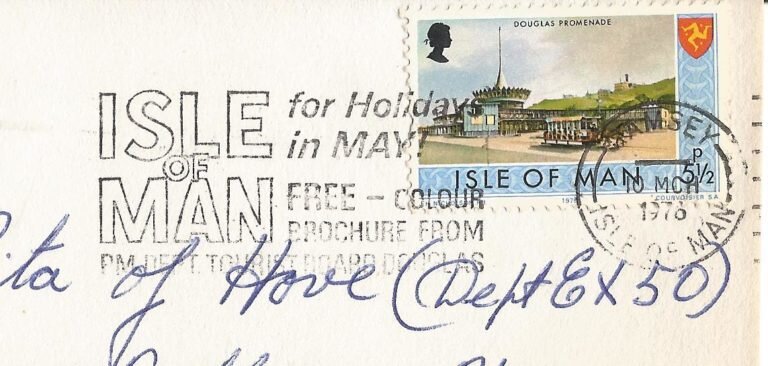 DOUGLAS PROMENADE
ISLE OF MAN
5½p
COURVOISIER S.A.
RAMSEY
10 MCH
1976
ISLE OF MAN
ISLE OF MAN
for Holidays
in MAY!
FREE - COLOUR
BROCHURE FROM
PM DEPT. TOURIST BOARD, DOUGLAS
ita of Hove (Dept EX 50)